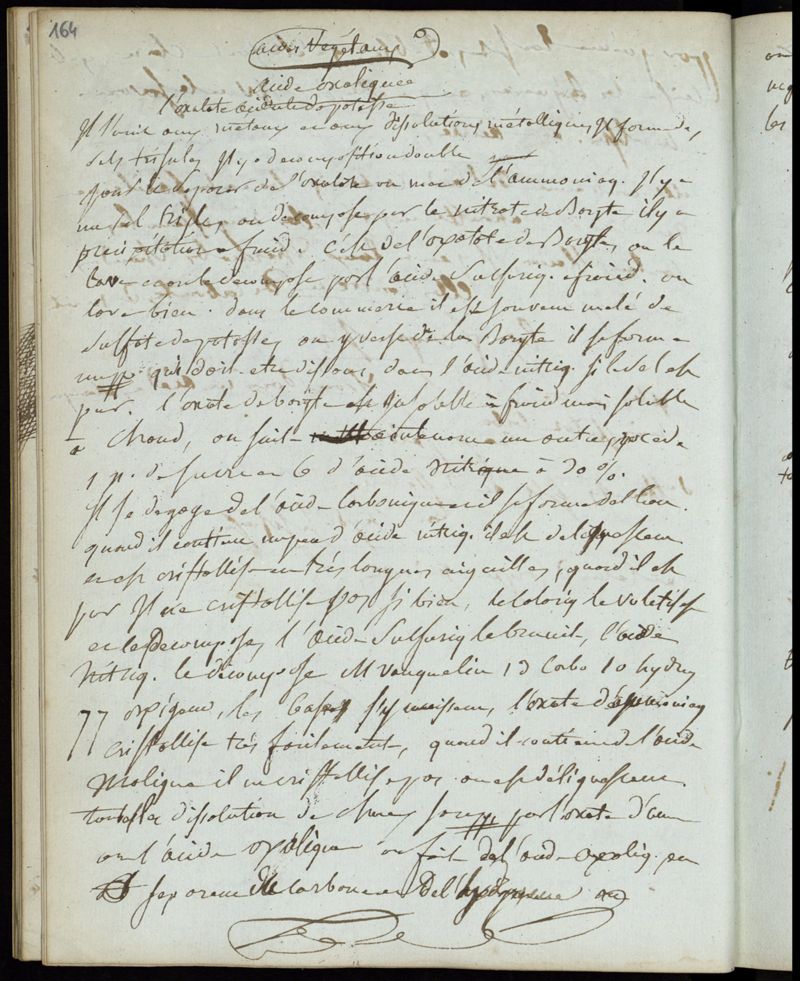 164
acides Végétaux
acide oxaliques
l'oxalate acidule de potasse
Il s'unit aux métaux et aux dissolutions métalliques Il forme des
sels triples Il y a decomposition double
pour le separer de l'oxalate on met de l'ammoniaq. Il y a
un sel triple, on decompose par le nitrate de Baryte il y a
précipitation a froid. c'est de l'oxalate de Baryte, on le
lave et on le decompose par l'acide Sulfuriq. a froid. on
lave bien. dans le commerce il est souvent melé de
Sulfate de potasse, on y verse de la Baryte il se forme
un pp qui doit etre dissous, dans l'acide nitriq. si le sel est
pur. l'oxate de baryte est Insoluble a froid mais soluble
a chaud, on suit maintenant un autre procédé
1 p. de sucre en 6 d'acide Nitrique à 30 %.
Il se degage de l'acide Carbonique et il se forme de l'eau.
quand il contient un peu d'acide nitriq. il est deliquescent
et est cristallisé en très longues aiguilles, quand il est
pur Il ne cristallise pas si bien, le caloriq le volatilise
et le decompose, l'acide Sulfuriq le brunit, l'acide
Nitriq. le décompose M Vauquelin 13 Carbo 10 hydro
77 oxigene, les bases s'y unissent, l'oxate d'ammoniaq
cristallise très facilement, quand il contient de l'acide
Malique il ne cristallise pas. on est déliquescent
toutes les dissolution de chaux sont pp par l'oxate d'am
on l'acide oxalique on fait de l'acide oxaliq. en
separant de carbone et de l'hydrogene